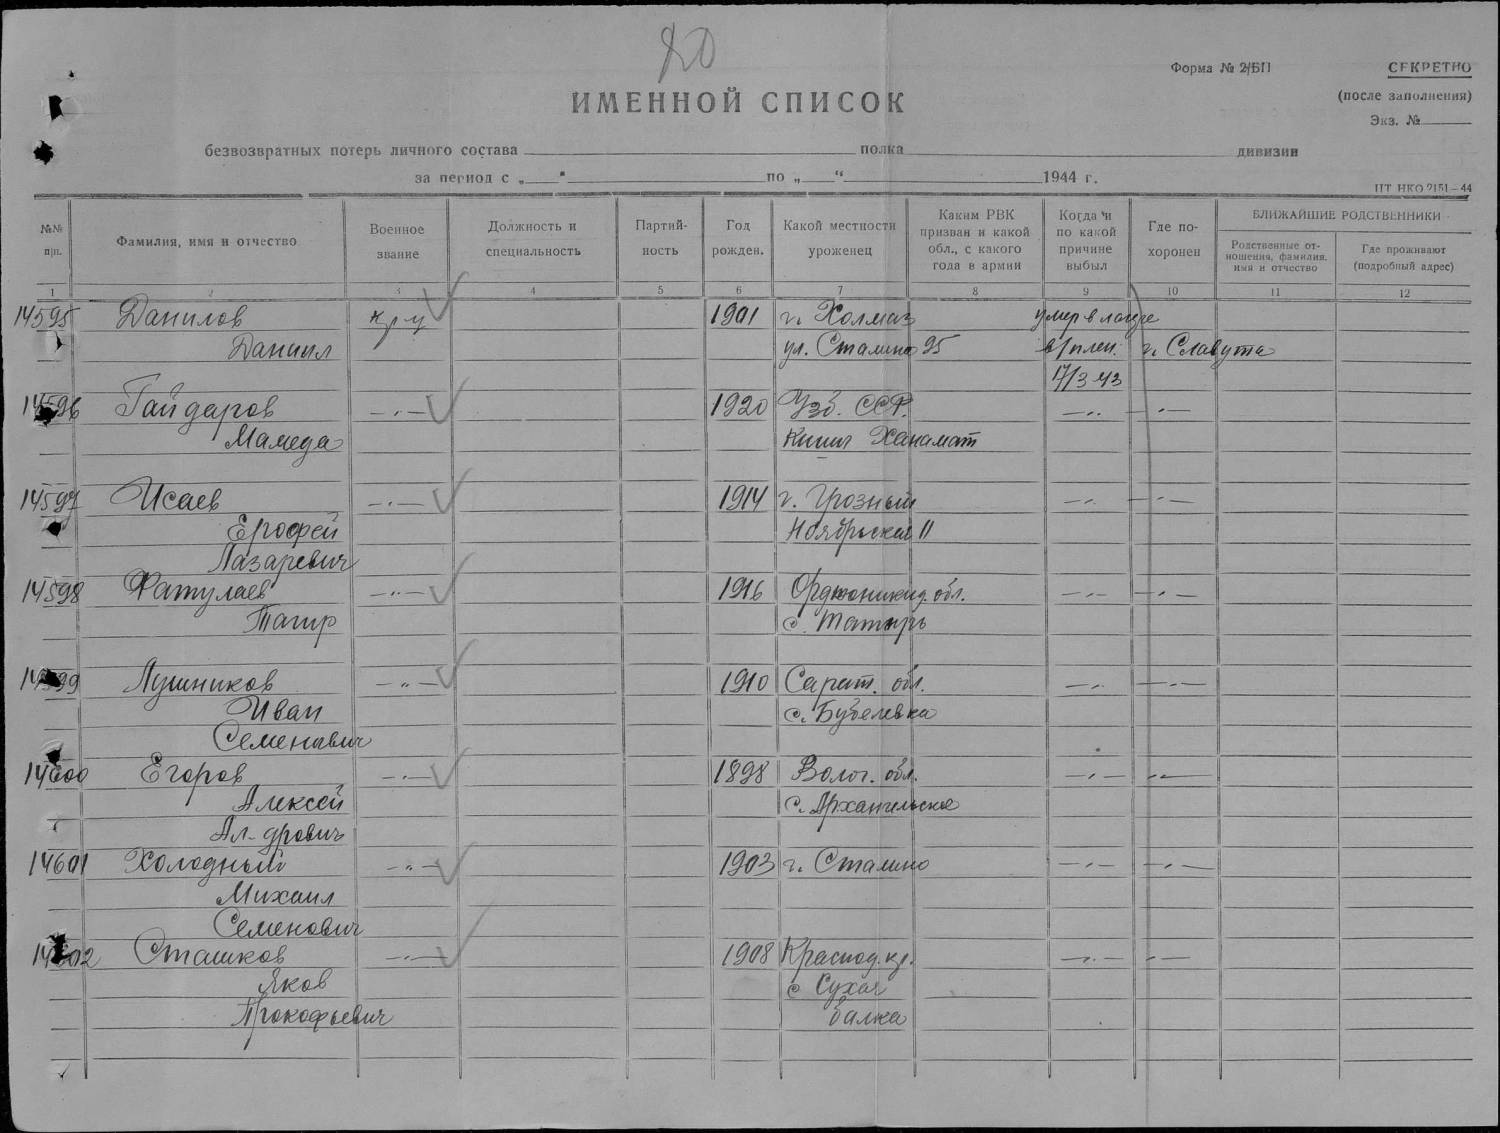 80
Форма № 2/БП
СЕКРЕТНО
(после заполнения)
Экз. №
ИМЕННОЙ СПИСОК
безвозвратных потерь личного состава полка дивизии
за период с „ “ по „ “ 1944 г.
ЦТ НКО 2151—44
№№ п/п.
Фамилия, имя и отчество
Военное звание
Должность и специальность
Партий-
ность
Год рожден.
Какой местности уроженец
Каким РВК призван и какой обл., с какого года в армии
Когда и по какой причине выбыл
Где по-
хоронен
БЛИЖАЙШИЕ РОДСТВЕННИКИ
Родственные от-
ношения, фамилия, имя и отчество
Где проживают (подробный адрес)
1 2 3 4 5 6 7 8 9 10 11 12
14595 Данилов кр-ц 1901 г. умер в лагере
Даниил ул. Сталина 95 в/плен. г. Славута
17/3 43
14596 Гайдаров —„— 1920 Узб. ССР. —„— —„—
Мамеда Ханамат
14597 Исаев —„— 1914 г. Грозный —„— —„—
Ерофей Ноябрьская 11
Лазаревич
14598 Фатулаев —„— 1916 Орджоникид. обл. —„— —„—
Тагир с.
14599 Лушников —„— 1910 Сарат. обл. —„— —„—
Иван с. Бубелевка
Семенович
14600 Егоров —„— 1898 Волог. обл. —„— —„—
Алексей с. Архангельское
Ал-дрович
14601 Холодный —„— 1903 г. Сталино —„— —„—
Михаил
Семенович
14602 Сташков —„— 1908 Краснод. кр. —„— —„—
Яков с Сухая
Прокофьевич балка